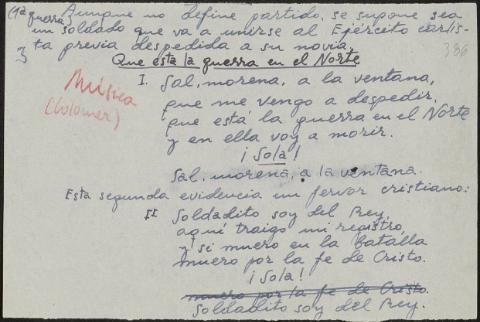 (1ª guerra) Aunque no define partido, se supone sea
un soldado que va a unirse al Ejército carlis-
ta previa despedida a su novia,
386
Que esta la guerra en el Norte
Música
(Colomer)
I. Sal, morena, a la ventana,
que me vengo a despedir,
que está la guerra en el Norte
y en ella voy a morir.
¡Sola!
Sal, morena, a la ventana.
Esta segunda evidencia un fervor cristiano:
II Soldadito soy del Rey,
aquí traigo mi registro,
y si muero en la batalla
muero por la fe de Cristo.
¡Sola!
muero por la fe de Cristo.
Soldadito soy del Rey.